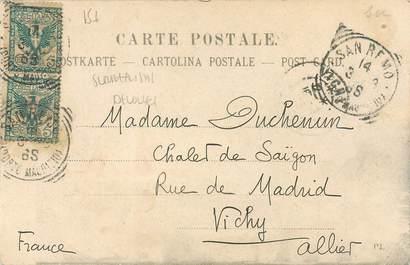 CARTE POSTALE.
POSTKARTE — CARTOLINA POSTALE — POST CARD.
SAN REMO
14
Madame Duchenun
Chalet de Saïgon
Rue de Madrid
Vichy
Allier
France